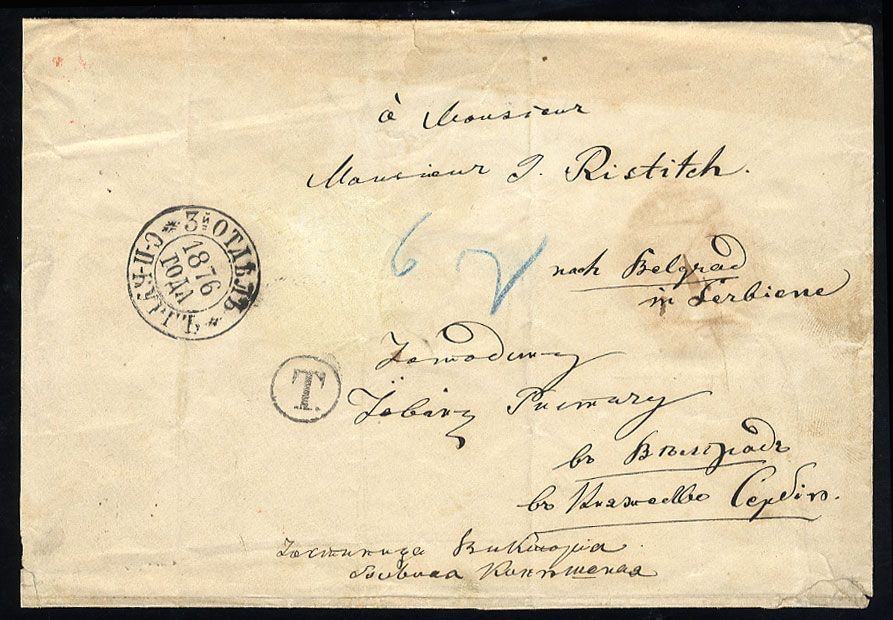 à Monsieur
Monsieur J. Ristitch.
nach Belgrad
in Serbiene
3й ОТДѢЛЪ
1876
ГОДА
6
T.
Господину
Іовану Ристичу
въ Бѣлградъ
въ Княжество Сербію.
Гостиница Викторія
бывшая